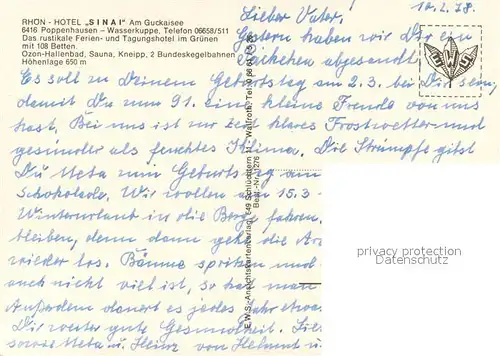 RHÖN - HOTEL „SINAI“ Am Guckaisee
6416 Poppenhausen – Wasserkuppe, Telefon 06658/511
Das rustikale Ferien- und Tagungshotel im Grünen
mit 108 Betten.
Ozon-Hallenbad, Sauna, Kneipp, 2 Bundeskegelbahnen
Höhenlage 650 m
10.2.78.
Lieber Vater!
Gestern haben wir Dir ein
abgesandt.
Es soll zu Deinem Geburtstag am 2.3. bei Dir sein,
damit Du zum 91. eine kleine Freude von uns
hast. Bei uns ist zur Zeit klares Frostwetter und
gesünder als feuchtes Klima. Die Strümpfe gibst
Du Meta zum Geburtstag am
Schokolade. Wir wollen am 15.3
Winterurlaub in die Berge fahren.
bleiben, denn dann geht die
wieder los. Bäume spritzen und
auch nicht viel ist, so hat man
Außerdem dauert es jedes Jahr etwa
Dir weiter gute Gesundheit.
sowie Meta u. Heinz von Helmut u.
E.W.S.-Ansichtskartenverlag, 649 Schlüchtern
Best.-Nr. 1276
privacy protection
Datenschutz